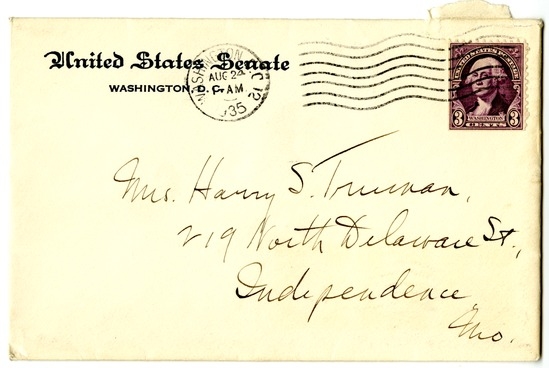 United States Senate
WASHINGTON, D. C.
WASHINGTON D.C. 12
AUG 24
AM
1935
UNITED STATES POSTAGE
3 WASHINGTON 3
CENTS
Mrs. Harry S. Truman,
219 North Delaware St.,
Independence
Mo.